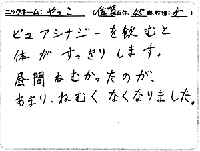 ニックネーム: やっこ
ピュアシナジーを飲むと
体がすっきりします。
昼間ねむかったのが、
あまり、ねむくなくなりました。